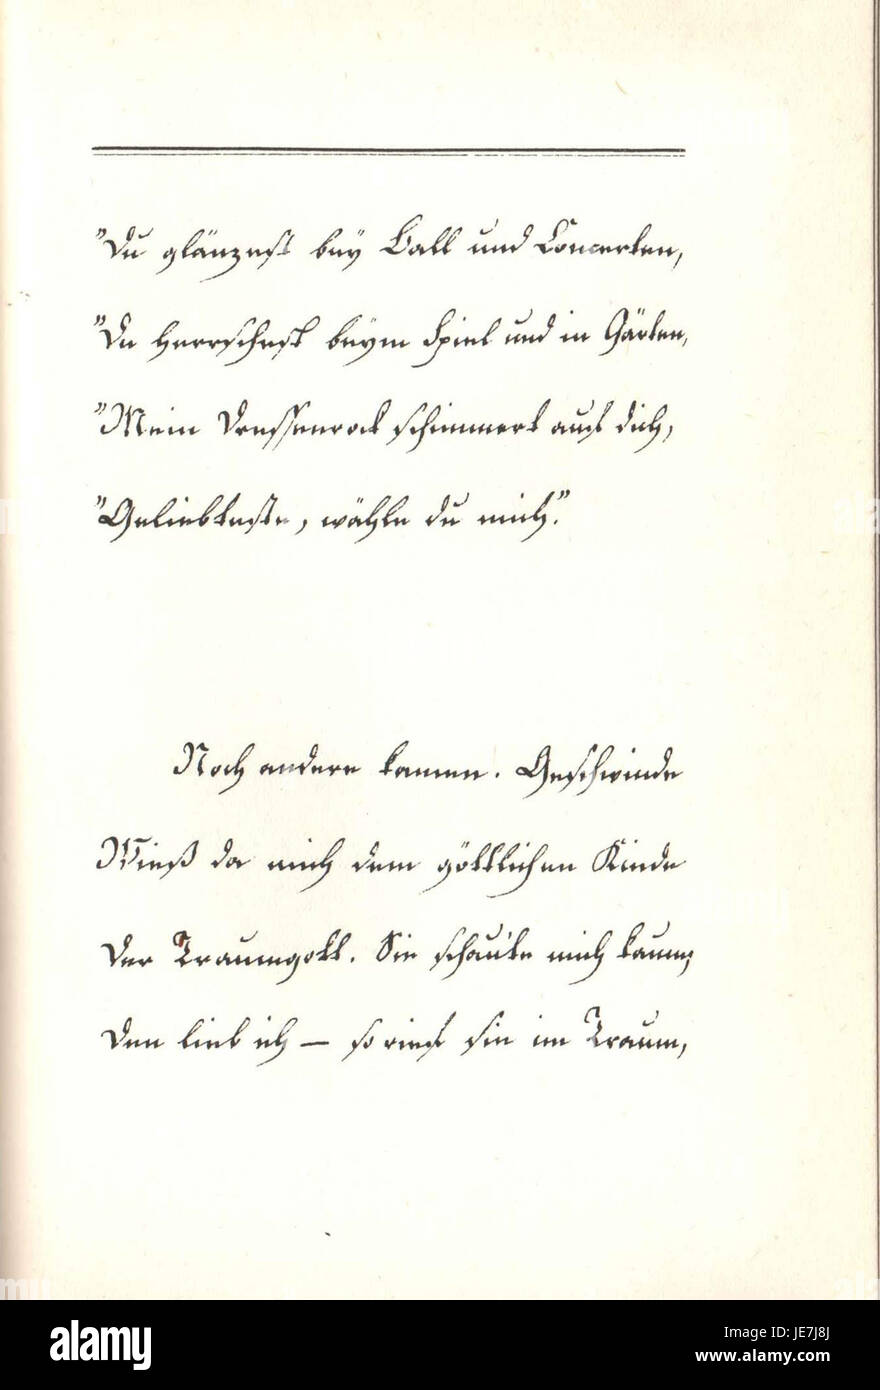 "Du glänzest bey Ball und Concerten,
"Du herrschest beym Spiel und in Gärten,
"Mein Tressenrock schimmert auf dich,
"Geliebteste, wähle du mich."
Noch andere kamen. Geschwinde
Wieß da mich dem göttlichen Kinde
Der Traumgott. Sie schaute mich kaum;
Den lieb ich — so rief sie im Traum,
alamy
Image ID: JE7J8J
www.alamy.com